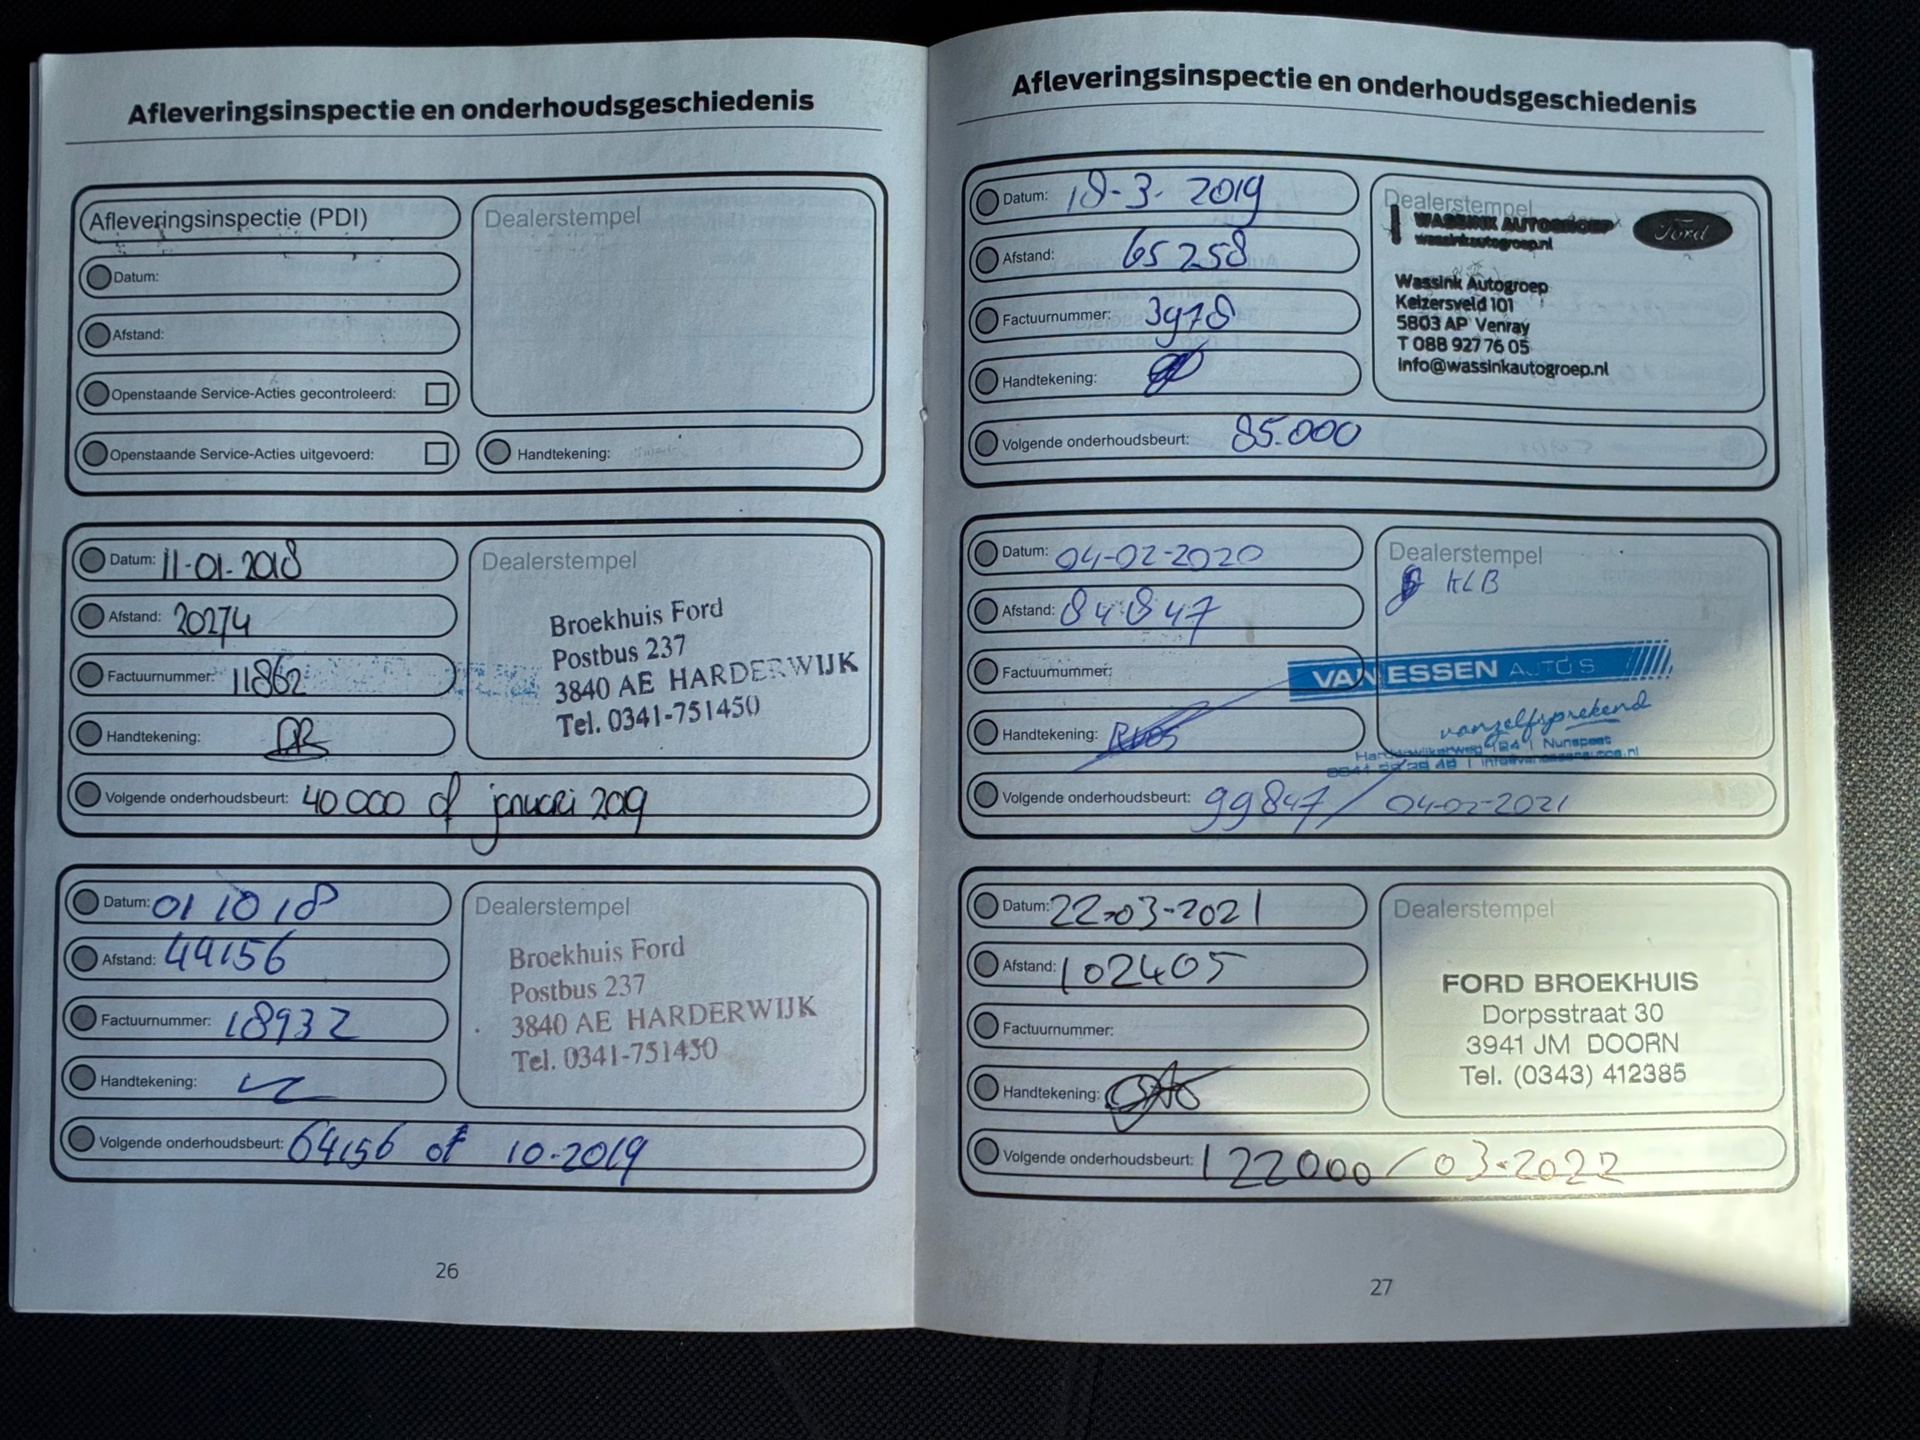 Afleveringsinspectie en onderhoudsgeschiedenis
Afleveringsinspectie (PDI)
Dealerstempel
Datum:
Afstand:
Openstaande Service-Acties gecontroleerd:
Openstaande Service-Acties uitgevoerd:
Handtekening:
Datum: 11-01-2018
Dealerstempel
Afstand: 20274
Factuurnummer: 11862
Handtekening:
Broekhuis Ford
Postbus 237
3840 AE HARDERWIJK
Tel. 0341-751450
Volgende onderhoudsbeurt: 40.000 of januari 2019
Datum: 01 10 18
Dealerstempel
Afstand: 44156
Factuurnummer: 18932
Handtekening:
Broekhuis Ford
Postbus 237
3840 AE HARDERWIJK
Tel. 0341-751450
Volgende onderhoudsbeurt: 64156 of 10-2019
26
Afleveringsinspectie en onderhoudsgeschiedenis
Datum: 18-3-2019
Dealerstempel
Afstand: 65258
Factuurnummer: 3978
Handtekening:
WASSINK AUTOGROEP
wassinkautogroep.nl
Ford
Wassink Autogroep
Keizersveld 101
5803 AP Venray
T 088 927 76 05
info@wassinkautogroep.nl
Volgende onderhoudsbeurt: 85.000
Datum: 04-02-2020
Dealerstempel
KLB
Afstand: 84847
Factuurnummer:
Handtekening:
VAN ESSEN AUTO'S
vanzelfsprekend
Nunspeet
Volgende onderhoudsbeurt: 99847 / 04-02-2021
Datum: 22-03-2021
Dealerstempel
Afstand: 102405
Factuurnummer:
Handtekening:
FORD BROEKHUIS
Dorpsstraat 30
3941 JM DOORN
Tel. (0343) 412385
Volgende onderhoudsbeurt: 122000 / 03-2022
27